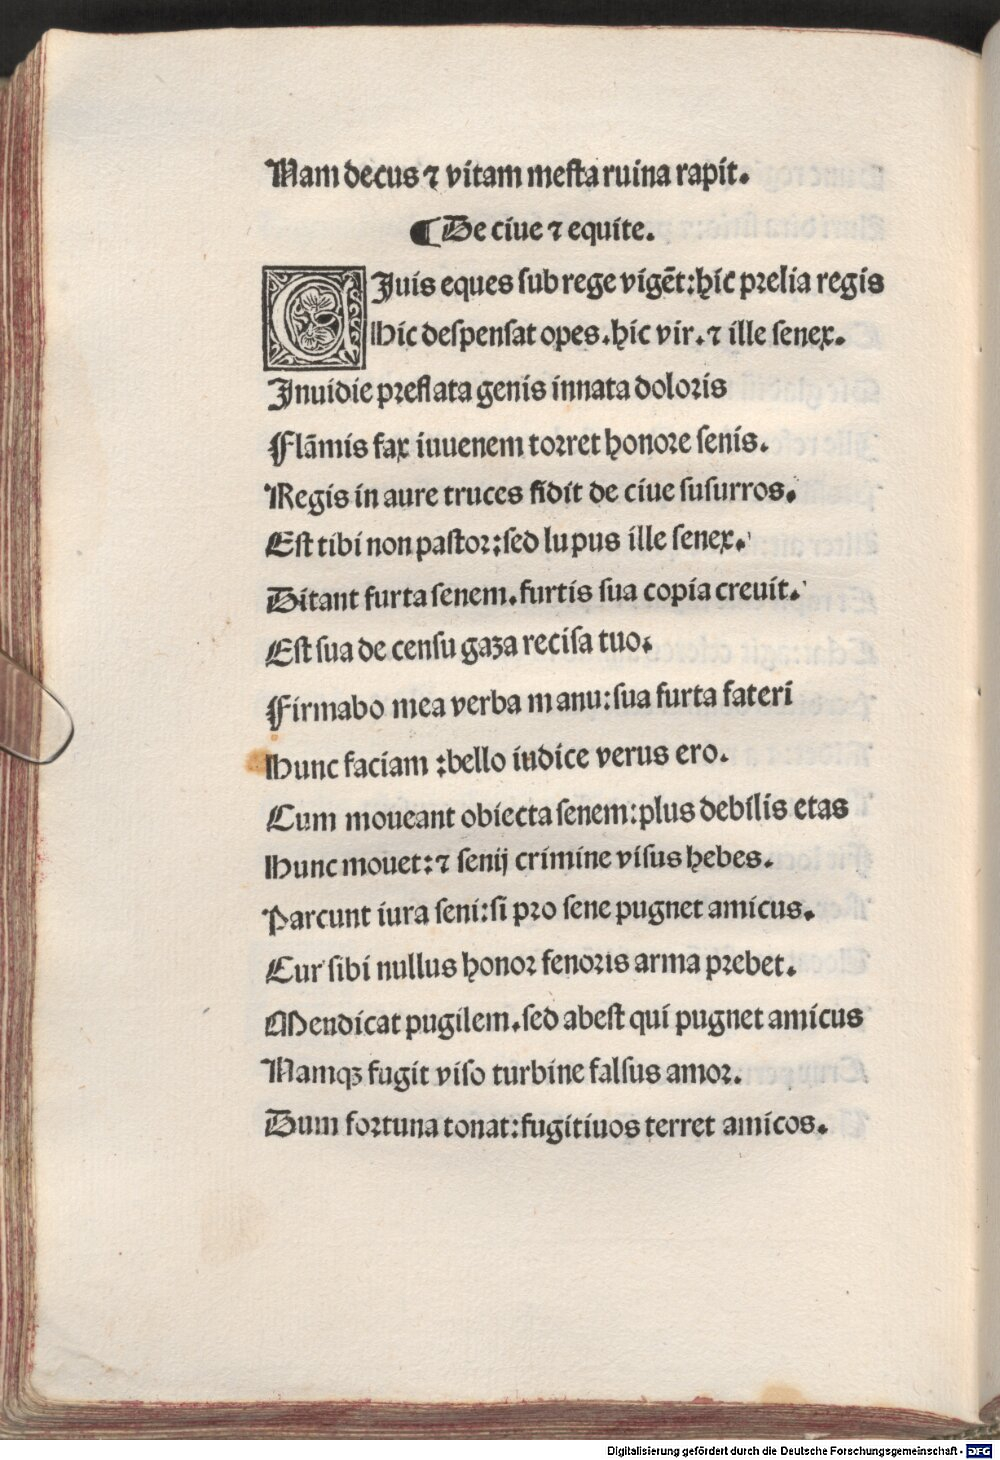 Nam decus ⁊ vitam mesta ruina rapit.
¶ De ciue ⁊ equite.
CIuis eques sub rege vigēt: hic prelia regis
Hic despensat opes. hic vir. ⁊ ille senex.
Inuidie preflata genis innata doloris
Flāmis fax iuuenem torret honore senis.
Regis in aure truces fidit de ciue susurros.
Est tibi non pastor: sed lupus ille senex.
Ditant furta senem. furtis sua copia creuit.
Est sua de censu gaza recisa tuo.
Firmabo mea verba manu: sua furta fateri
Hunc faciam: bello iudice verus ero.
Cum moueant obiecta senem: plus debilis etas
Hunc mouet: ⁊ senij crimine visus hebes.
Parcunt iura seni: si pro sene pugnet amicus.
Cur sibi nullus honor fenoris arma prebet.
Mendicat pugilem. sed abest qui pugnet amicus
Namqꝫ fugit viso turbine falsus amor.
Dum fortuna tonat: fugitiuos terret amicos.
Digitalisierung gefördert durch die Deutsche Forschungsgemeinschaft - DFG